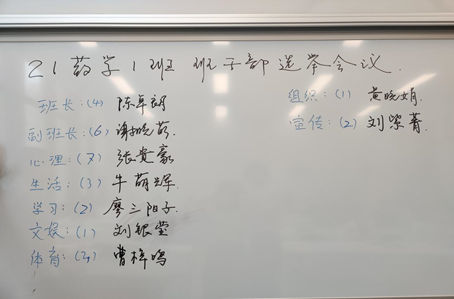 21药学1班 班干部选举会议.
班长:(4) 陈卓朗
副班长:(6) 谢晓
心理:(7) 张贵豪
生活:(3) 牛萌辉.
学习:(2) 廖三阳子.
文娱:(1) 刘银莹
体育:(4) 曹梓鸣
组织:(1) 黄晓娟.
宣传:(2) 刘紫菁.